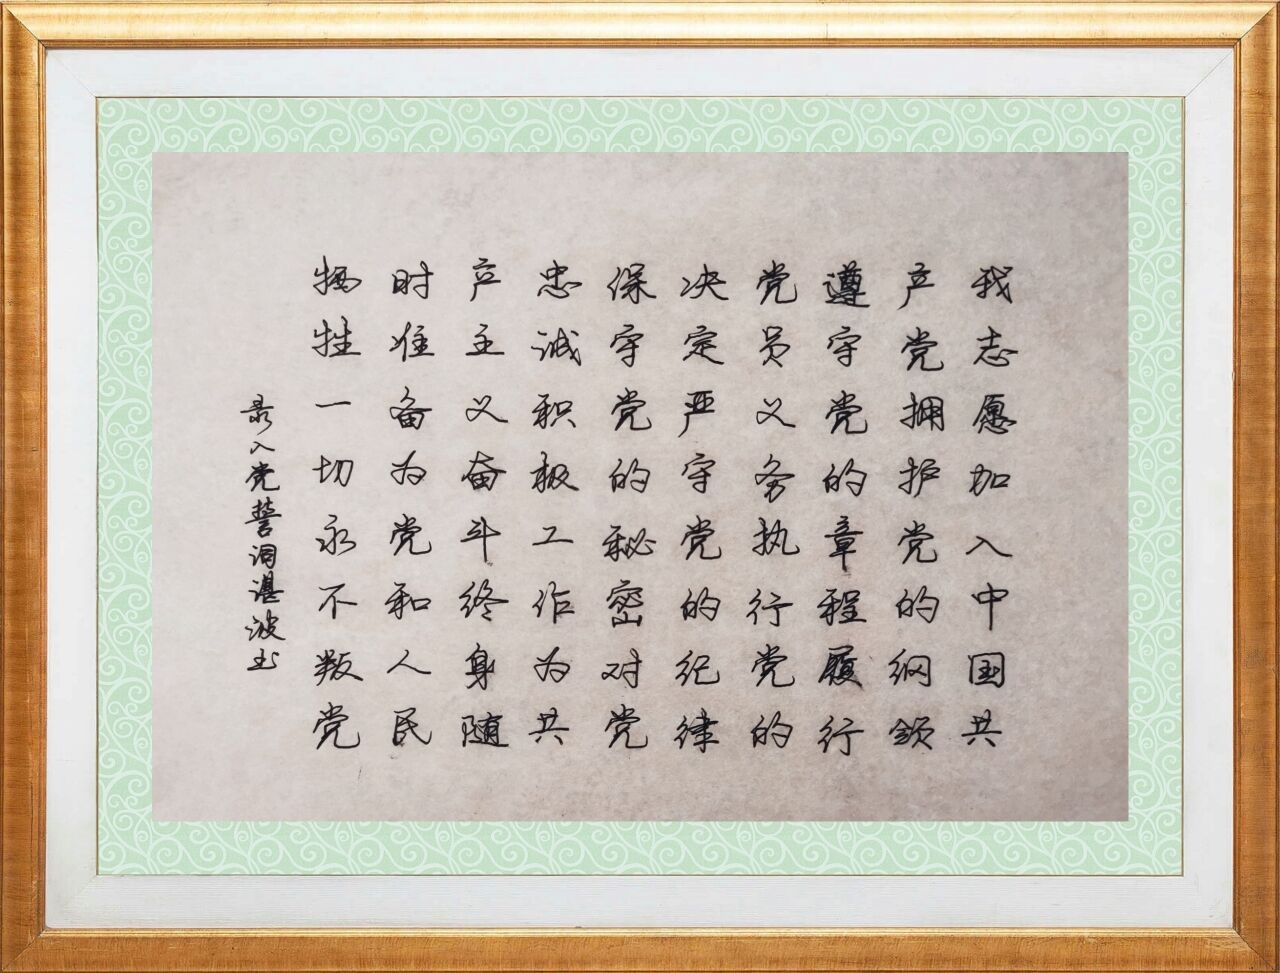 我志愿加入中国共
产党拥护党的纲领
遵守党的章程履行
党员义务执行党的
决定严守党的纪律
保守党的秘密对党
忠诚积极工作为共
产主义奋斗终身随
时准备为党和人民
牺牲一切永不叛党
录入党誓词湛波书